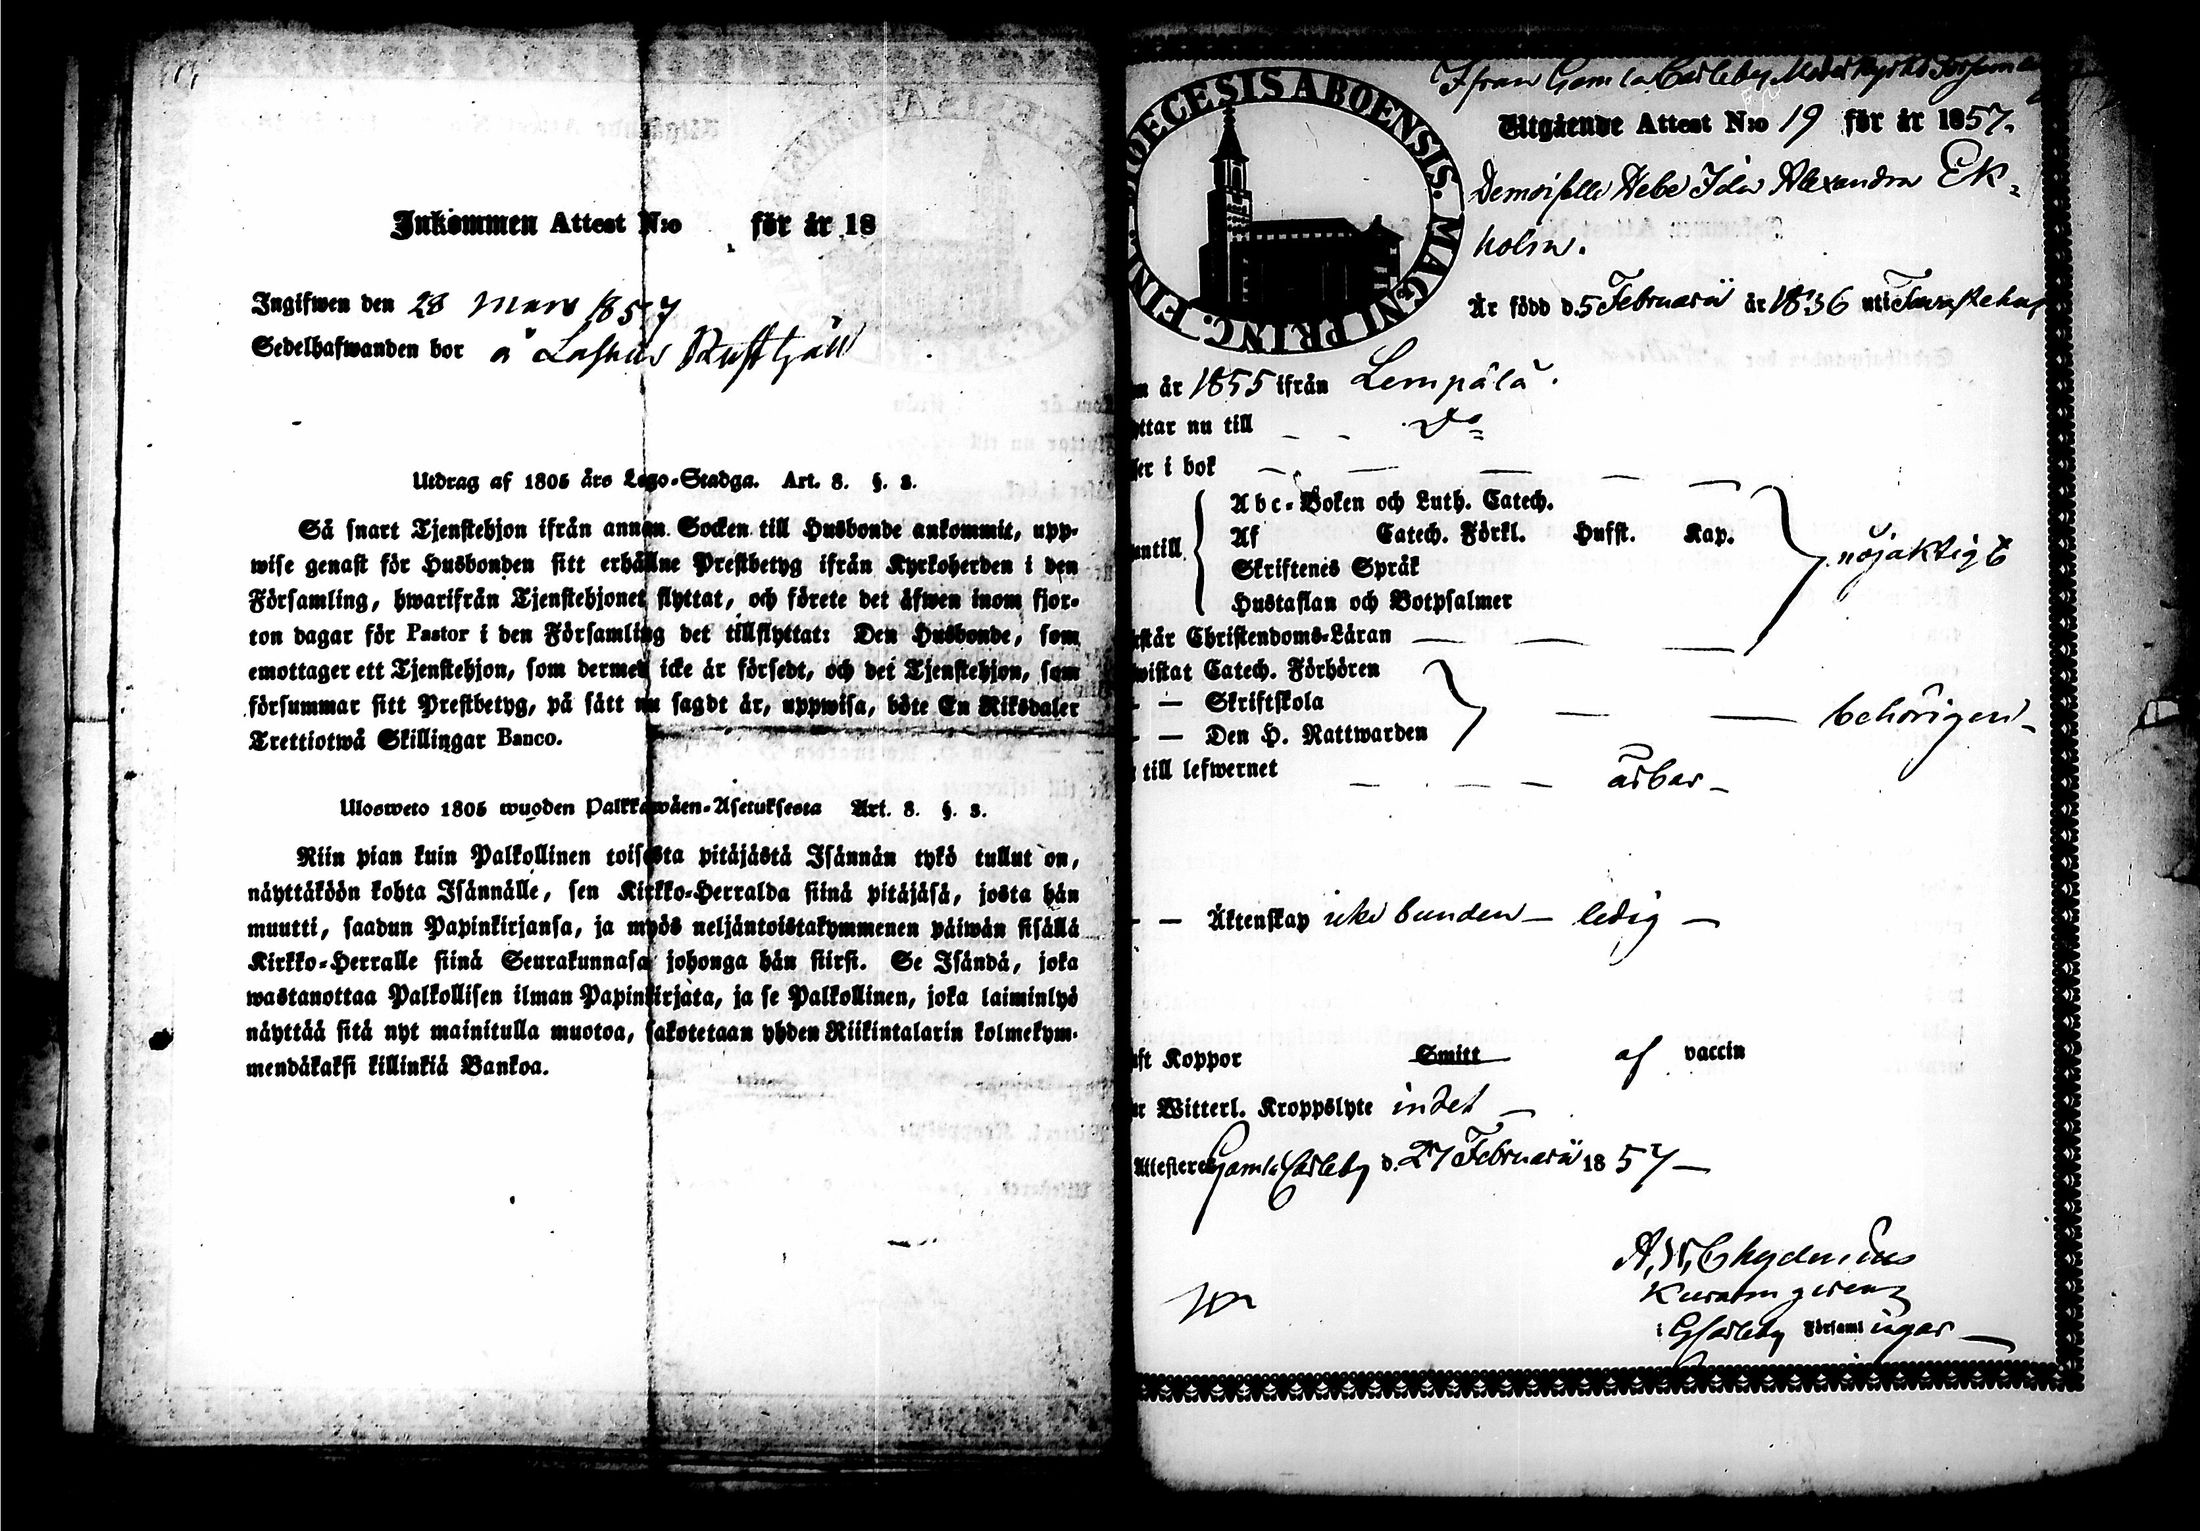 Inkommen Attest N:o för år 18
Ingifwen den 28 Mars 1857
Sedelhafwanden bor å Laskus Rusthåll
Utdrag af 1805 års Lego-Stadga. Art. 8. §. 3.
Så snart Tjenstehjon ifrån annan Socken till Husbonde ankommit, upp-
wise genast för Husbonden sitt erhållne Prestbetyg ifrån Kyrkoherden i den
Församling, hwarifrån Tjenstehjonet flyttat, och förete det äfwen inom fjor-
ton dagar för Pastor i den Församling det tillflyttat: Den Husbonde, som
emottager ett Tjenstehjon, som dermed icke är försedt, och det Tjenstehjon, som
försummar sitt Prestbetyg, på sätt nu sagdt är, uppwisa, böte En Riksdaler
Trettiotwå Skillingar Banco.
Ulosweto 1805 wuoden Palkkawäen-Asetuksesta Art. 8. §. 3.
Niin pian kuin Palkollinen toisesta pitäjästä Isännän tykö tullut on,
näyttäköön kohta Isännälle, sen Kirkko-Herralda siinä pitäjäsä, josta hän
muutti, saadun Papinkirjansa, ja myös neljäntoistakymmenen päiwän sisällä
Kirkko-Herralle siinä Seurakunnasa johonga hän siirsi. Se Isändä, joka
wastanottaa Palkollisen ilman Papinkirjata, ja se Palkollinen, joka laiminlyö
näyttää sitä nyt mainitulla muotoa, sakotetaan yhden Riikintalarin kolmekym-
mendäkaksi killinkiä Bankoa.
DIOECESIS ABOENSIS. MAGNI PRINC. FINL.
Ifrån Gamla Carleby Moderkyrko Församling
Utgående Attest N:o 19 för år 1857.
Demoiselle Hebe Ida Alexandra Ek-
holm.
Är född d. 5 Februarii år 1836 uti Tavastehus
m år 1855 ifrån Lempälä.
yttar nu till Do
ser i bok
Abc-Boken och Luth. Catech.
untill Af Catech. Förkl. Husst. Kap. nöjaktigt
Skriftenes Språk
Hustaflan och Botpsalmer
rstår Christendoms-Läran
wistat Catech. Förhören
— Skriftskola
— Den H. Nattwarden behörigen
till lefwernet ärbar
— Äktenskap icke bunden — ledig —
ft Koppor Smitt af vaccin
ar Witterl. Kroppslyte intet
Attesteres Gamla Carleby d. 27 Februarii 1857
A. H. Chydenius
i GCarleby Församlingar